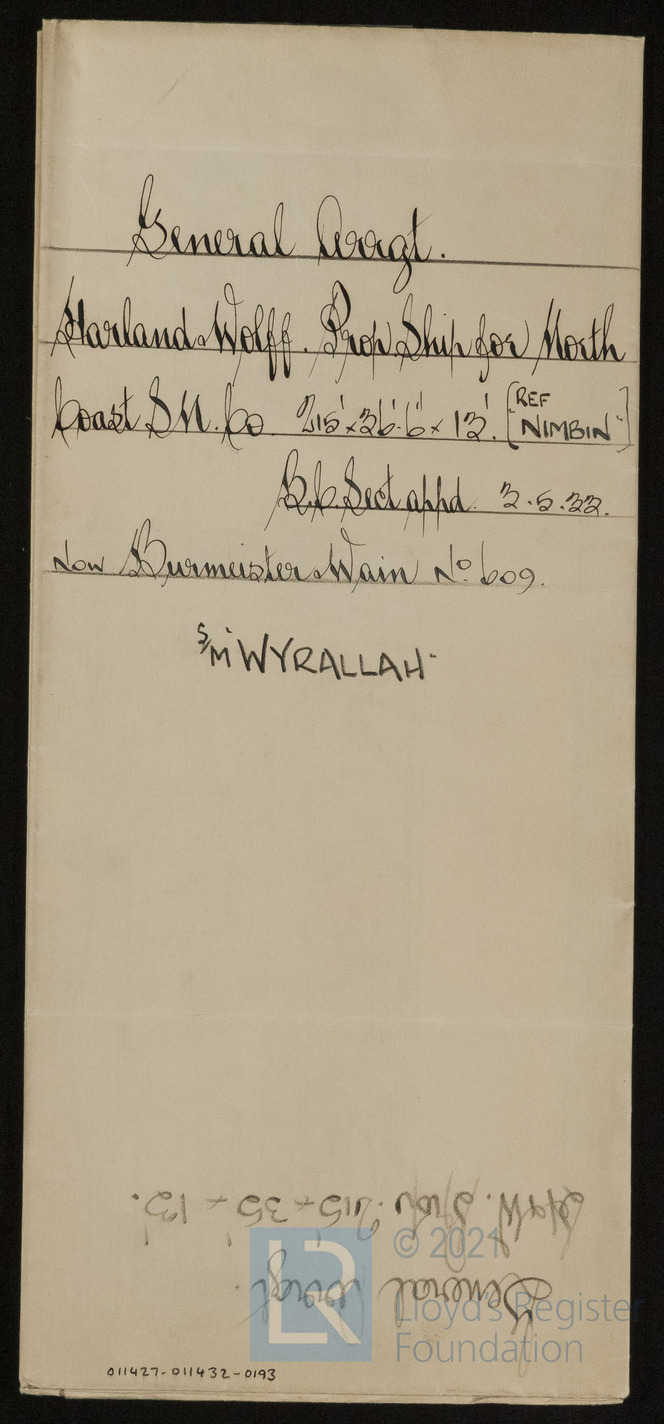 General Arrgt.
Harland & Wolff. Prop Ship for North
Coast S N. Co 215' x 36'-6" x 13'. [REF "NIMBIN"]
B.C. Sect appd. 2.5.22.
Now Burmeister & Wain No. 609.
S/M "WYRALLAH"
H & W. 215' x 35' x 13'.
General Arrgt.
© 2021
Lloyd's Register
Foundation
011427-011432-0193